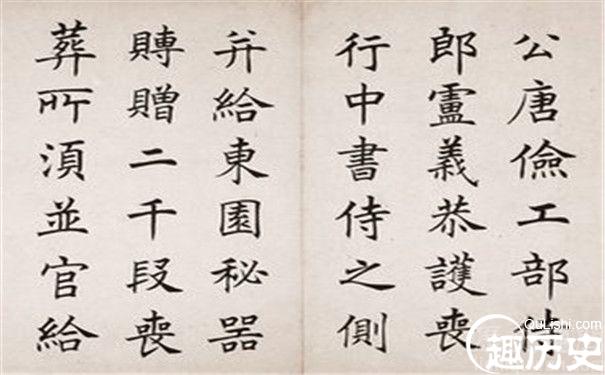 公唐儉工部侍
郎盧義恭護喪
行中書侍之側
并給東園秘器
賻贈二千段喪
葬所湏並官給
QuLishi.com
趣历史